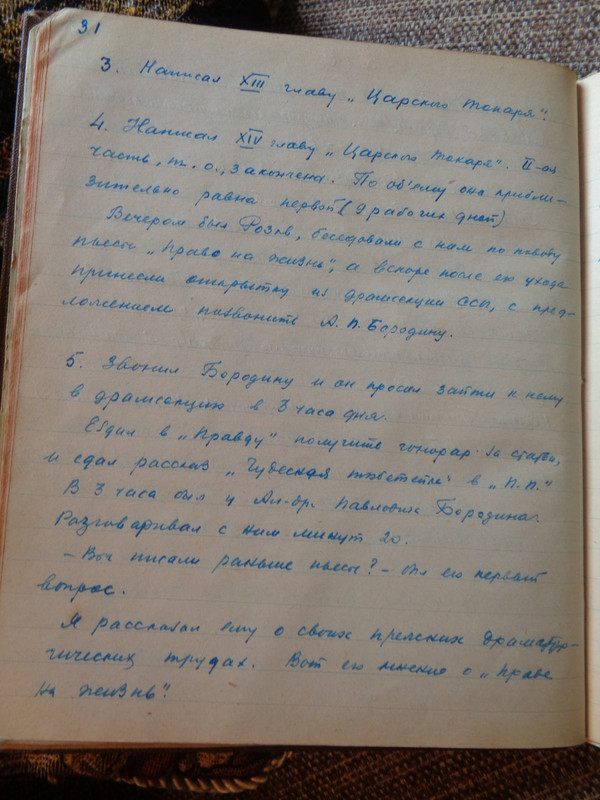 31
3. Написал XIII главу „Царского токаря".
4. Написал XIV главу „Царского токаря". II-ая
часть, т. о., закончена. По об'ему она прибли-
зительно равна первой (9 рабочих дней)
Вечером был Розов, беседовали с ним по поводу
пьесы „Право на жизнь", а вскоре после его ухода
принесли открытку из драмсекции ССП, с пред-
ложением позвонить А. П. Бородину.
5. Звонил Бородину и он просил зайти к нему
в драмсекцию в 3 часа дня.
Ездил в „Правду" получить гонорар за статьи,
и сдал рассказ „Чудесная" в „П.П."
В 3 часа был у Ал-др. Павловича Бородина.
Разговаривал с ним минут 20.
– Вы писали раньше пьесы? – был его первый
вопрос.
Я рассказал ему о своих прежних драматур-
гических трудах. Вот его мнение о „Праве
на жизнь".